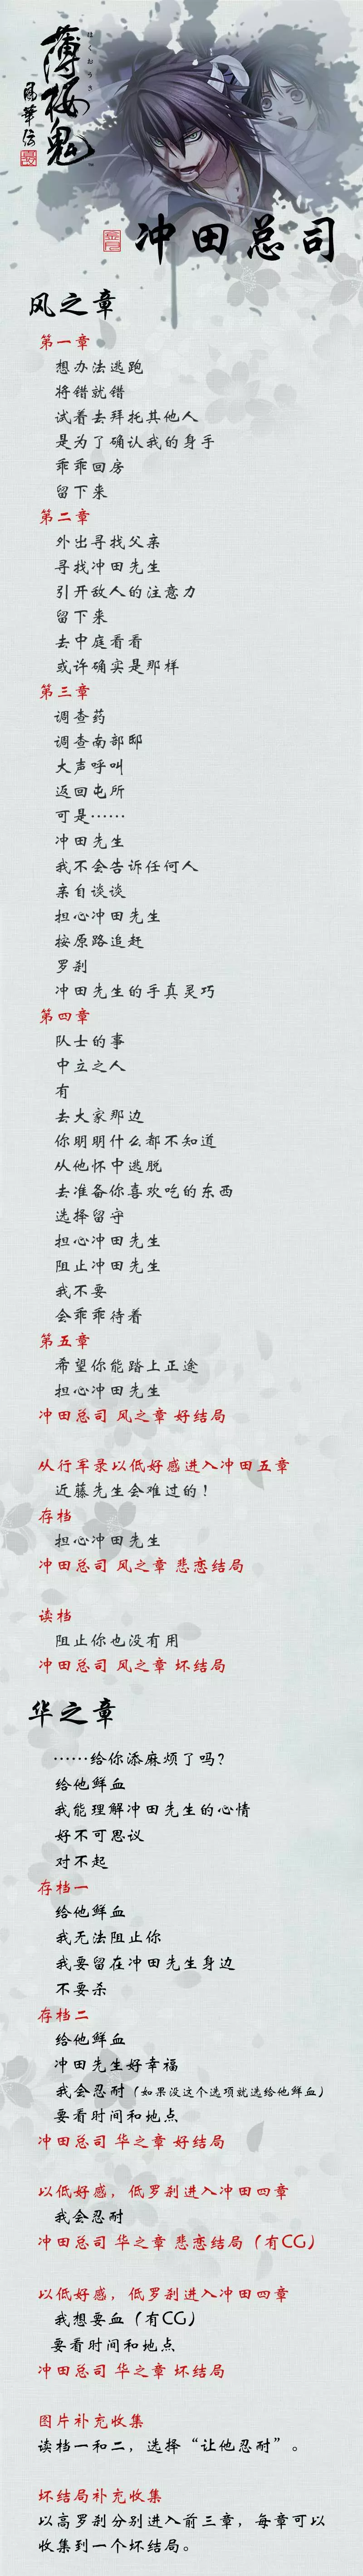 薄桜鬼
はくおうき
風華伝
冲田总司
风之章
第一章
想办法逃跑
将错就错
试着去拜托其他人
是为了确认我的身手
乖乖回房
留下来
第二章
外出寻找父亲
寻找冲田先生
引开敌人的注意力
留下来
去中庭看看
或许确实是那样
第三章
调查药
调查南部邸
大声呼叫
返回屯所
可是······
冲田先生
我不会告诉任何人
亲自谈谈
担心冲田先生
按原路追赶
罗刹
冲田先生的手真灵巧
第四章
队士的事
中立之人
有
去大家那边
你明明什么都不知道
从他怀中逃脱
去准备你喜欢吃的东西
选择留守
担心冲田先生
阻止冲田先生
我不要
会乖乖待着
第五章
希望你能踏上正途
担心冲田先生
冲田总司 风之章 好结局
从行军录以低好感进入冲田五章
近藤先生会难过的！
存档
担心冲田先生
冲田总司 风之章 悲恋结局
读档
阻止你也没有用
冲田总司 风之章 坏结局
华之章
······给你添麻烦了吗？
给他鲜血
我能理解冲田先生的心情
好不可思议
对不起
存档一
给他鲜血
我无法阻止你
我要留在冲田先生身边
不要杀
存档二
给他鲜血
冲田先生好幸福
我会忍耐（如果没这个选项就选给他鲜血）
要看时间和地点
冲田总司 华之章 好结局
以低好感，低罗刹进入冲田四章
我会忍耐
冲田总司 华之章 悲恋结局（有CG）
以低好感，低罗刹进入冲田四章
我想要血（有CG）
要看时间和地点
冲田总司 华之章 坏结局
图片补充收集
读档一和二，选择“让他忍耐”。
坏结局补充收集
以高罗刹分别进入前三章，每章可以
收集到一个坏结局。